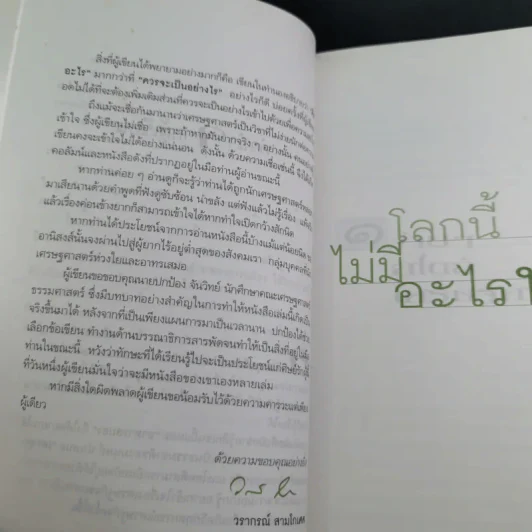 สิ่งที่ผู้เขียนได้พยายามอย่างมากก็คือ เขียนในทำนองอธิบายว่า
อะไร" มากกว่าที่ "ควรจะเป็นอย่างไร" อย่างไรก็ดี บ่อยครั้งที่ผู้เขียน
อดไม่ได้ที่จะต้องเพิ่มเติมส่วนที่ควรจะเป็นอย่างไรเข้าไปด้วย
ถึงแม้จะเชื่อกันมานานว่าเศรษฐศาสตร์เป็นวิชาที่ไม่ง่ายนัก
เข้าใจ ซึ่งผู้เขียนไม่เชื่อ เพราะถ้าหากมันยากจริง ๆ อย่างนั้น
เขียนคงจะเข้าใจไม่ได้อย่างแน่นอน ดังนั้น ด้วยความเชื่อเช่นนี้
คอลัมน์และหนังสือดังที่ปรากฏอยู่ในมือท่านผู้อ่านขณะนี้
หากท่านค่อย ๆ อ่านดูก็จะรู้ว่าท่านได้ถูกนักเศรษฐศาสตร์
มาเสียนานด้วยคำพูดที่ฟังดูซับซ้อน น่าขลัง แต่ฟังแล้วไม่รู้เรื่อง
แล้วเรื่องค่อนข้างยากก็สามารถเข้าใจได้หากทำใจเปิดกว้างสักนิด
หากท่านได้ประโยชน์จากการอ่านหนังสือนี้บ้างแม้แต่น้อยนิด
อานิสงส์นั้นจงผ่านไปสู่ผู้ยากไร้อยู่ต่ำสุดของสังคมเรา กลุ่มบุคคลที่
เศรษฐศาสตร์ห่วงใยและอาทรเสมอ
ผู้เขียนขอขอบคุณนายปกป้อง จันวิทย์ นักศึกษาคณะเศรษฐศาสตร์
ธรรมศาสตร์ ซึ่งมีบทบาทอย่างสำคัญในการทำให้หนังสือเล่มนี้เกิดเป็น
จริงขึ้นมาได้ หลังจากที่เป็นเพียงแผนการมาเป็นเวลานาน ปกป้องได้ช่วย
เลือกข้อเขียน ทำงานด้านบรรณาธิการสารพัดจนทำให้เป็นสิ่งที่อยู่ในมือ
ท่านในขณะนี้ หวังว่าทักษะที่ได้เรียนรู้ไปจะเป็นประโยชน์แก่ศิษย์รักผู้นี้
ที่วันหนึ่งผู้เขียนมั่นใจว่าจะมีหนังสือของเขาเองหลายเล่ม
หากมีสิ่งใดผิดพลาดผู้เขียนขอน้อมรับไว้ด้วยความคารวะแต่เพียง
ผู้เดียว
ด้วยความขอบคุณอย่างยิ่ง
วรากรณ์ สามโกเศศ
โลกนี้
ไม่มี
อะไร